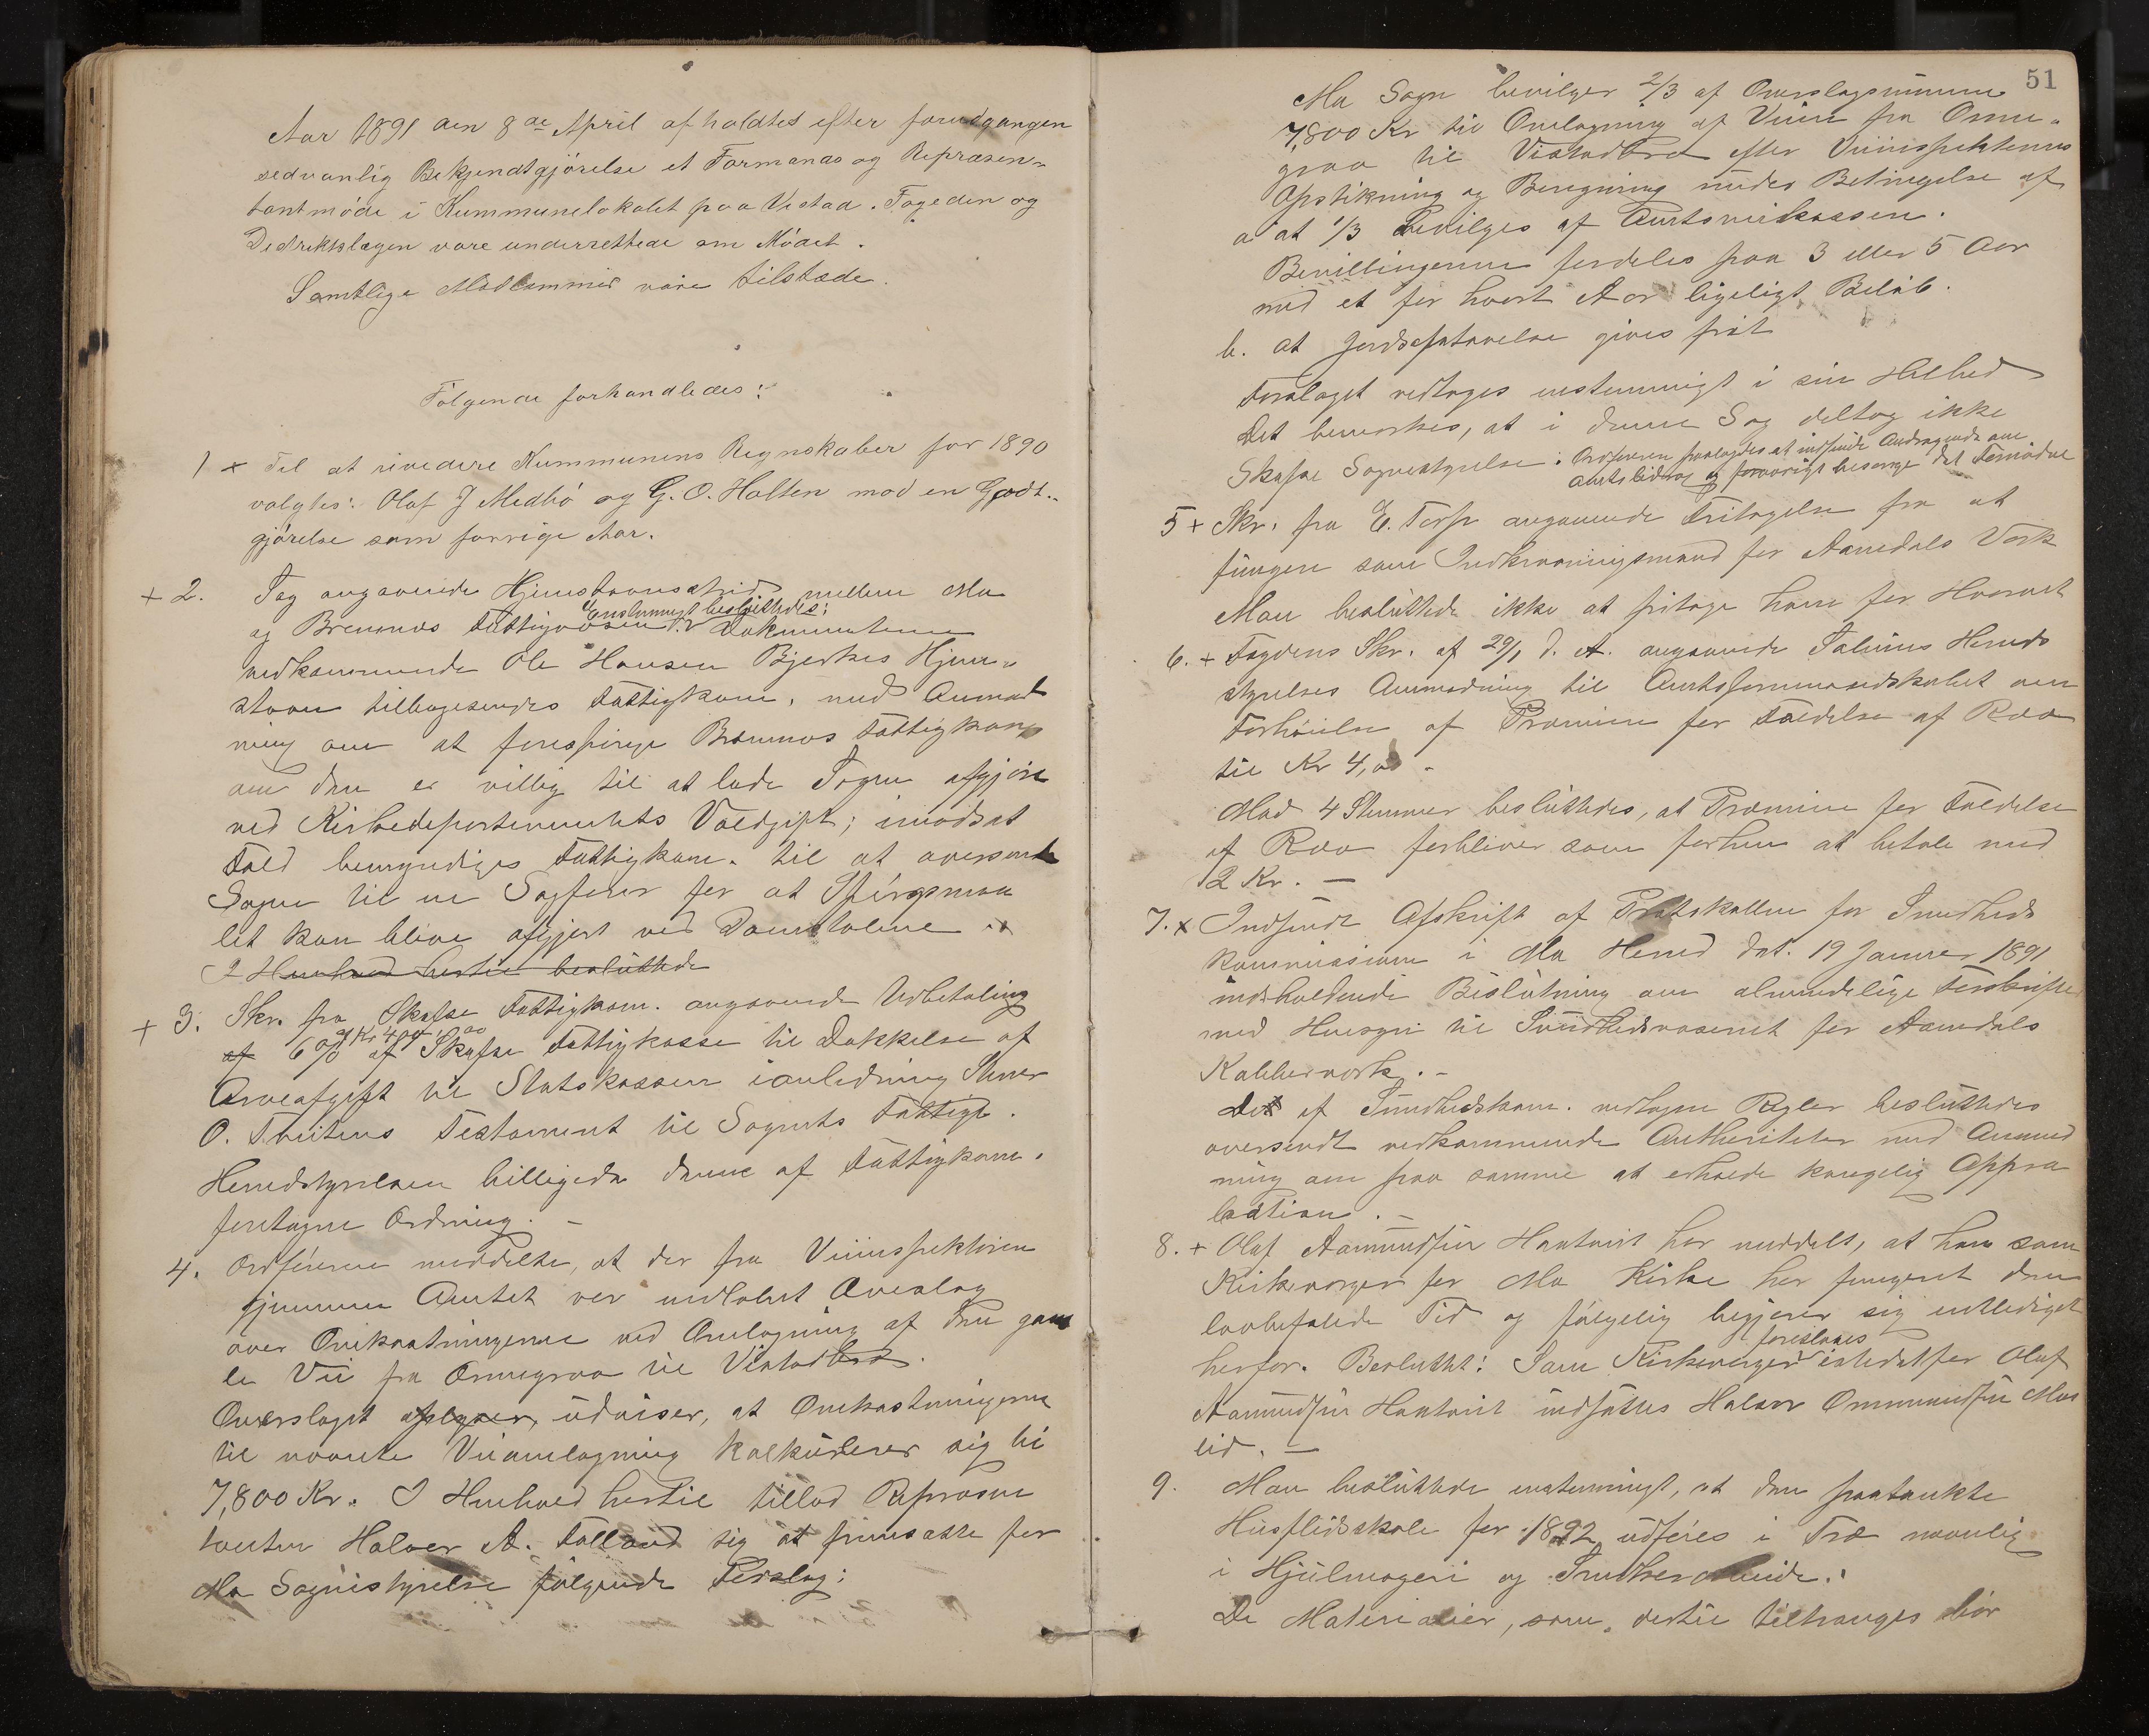 Aar 1891 den 8de April afholdtes efter forudgangen
sedvanlig Bekjendtgjørelse et Formands og Repræsen-
tantmøde i Kummunelokalet paa Vistad. Fogeden og
Destriktslægen vare underrettede om Mødet.
Samtlige Medlemmer vare tilstæde.
Følgende forhandledes:
1 + Til at rividere Kummunens Regnskaber for 1890
valgtes: Olaf J Medbø og G. O. Holten mod en Godt-
gjørelse som forrige Aar.
+ 2. Sag angaaende Hjemstavnsstrid mellem Mo
Enstemmigt besluttedes:
og Bremnæs Fattigvæsen. Dokumenterne
vedkommende Ole Hansen Bjerkes Hjem-
stavn tilbagesendes Fattigkom. med Anmod
ning om at forespørge Bremnæs Fattigkom
om den er villig til at lade Sagen afgjøre
ved Kirkedepartementets Voldgift; imodsat
Fald bemyndiges Fattigkom. til at oversende
Sagen til en Sagfører for at Spørgsmaa
let kan blive afgjort ved Domstolene. x
I Henhold hertil besluttede
+ 3. Skr. fra Skafse Fattigkom. angaaende Udbetaling
af 6% af Skafse Fattigkasse til Dækkelse af
Arveafgift til Statskassen i anledning
O. Tveitens Testament til Sognets Fattige.
Herredstyrelsen billigede denne af Fattigkom.
foretagne Ordning. –
4. Ordføreren meddelte, at der fra Veiinspektøren
gjennem Amtet var indløbet Overslag
over Omkostningerne ved Omlægning af den gam
le Vei fra Ormegraa til Vistadbro.
Overslaget udviser, at Omkostningerne
til nævnte Veiomlægning kalkulerer sig til
7,800 Kr. I Henhold hertil tillod Repræsen
tanten Halvor A. Følland sig at fremsætte for
Mo Sognestyrelse følgende Forslag:
51
Mo Sogn bevilger 2/3 af Overslagsummen
7,800 Kr til Omlægning af Veien fra Orme-
graa til Vistadbro efter Veiinspektørens
Opstikning og Beregning under Betingelse af
a at 1/3 bevilges af Amtsveikassen.
Bevillingerne fordeles paa 3 eller 5 Aar
med et for hvert Aar ligeligt Beløb.
b. at Jordafstaaelse gives frit
Forslaget vedtages enstemmigt i sin Helhed
Det bemærkes, at i denne Sag deltog ikke
Skafse Sognestyrelse. Ordføreren paalagdes at indsende Andragende om
Amtsbidrag og forøvrigt besørge det Fornødne
5 + Skr. fra E. Torp angaaende Fritagelse fra at
fungere som Indkvarteringsmand for Aamdals Værk
Man besluttede ikke at fritage ham for Hvervet
6. + Fogdens Skr. af 29/1 d. A. angaaende Herreds
styrelses Anmodning til Amtsformandskabet om
Forhøielse af Præmien for Fældelse af Ræv
til Kr 4,00 -
Med 4 Stemmer besluttedes, at Præmien for Fældelse
af Ræv forbliver som forhen at betale med
2 Kr. –
7. x Indsendt Afskrift af Protokollen for Sundheds
kommissionen i Mo Herred dat. 19 Januar 1891
indeholdende Beslutning om almindelige Forskrifter
med Hensyn til Sundhedsvæsenet for Aamdals
Kobberværk. –
De af Sundhedskom. vedtagne Regler besluttedes
oversendt vedkommende Autoriteter med Anmod
ning om paa samme at erholde kongelig Appro
bation. –
8. + Olaf Aamundsen Haatveit har meddelt, at han som
Kirkeværger for Mo Kirke har fungeret den
lovbefalede Tid og følgelig begjærer sig entlediget
foreslaaes
herfor. Besluttet: Som Kirkeværger istedetfor Olaf
Aamundsen Haatveit indsættes Halvor Ommundsen Mos
lid. –
9. Man besluttede enstemmigt, at den paatænkte
Husflidsskole for 1892 udføres i Træ navnlig
i Hjulmageri og Snedkerarbeide.
De Materialier, som dertil tiltrænges bør